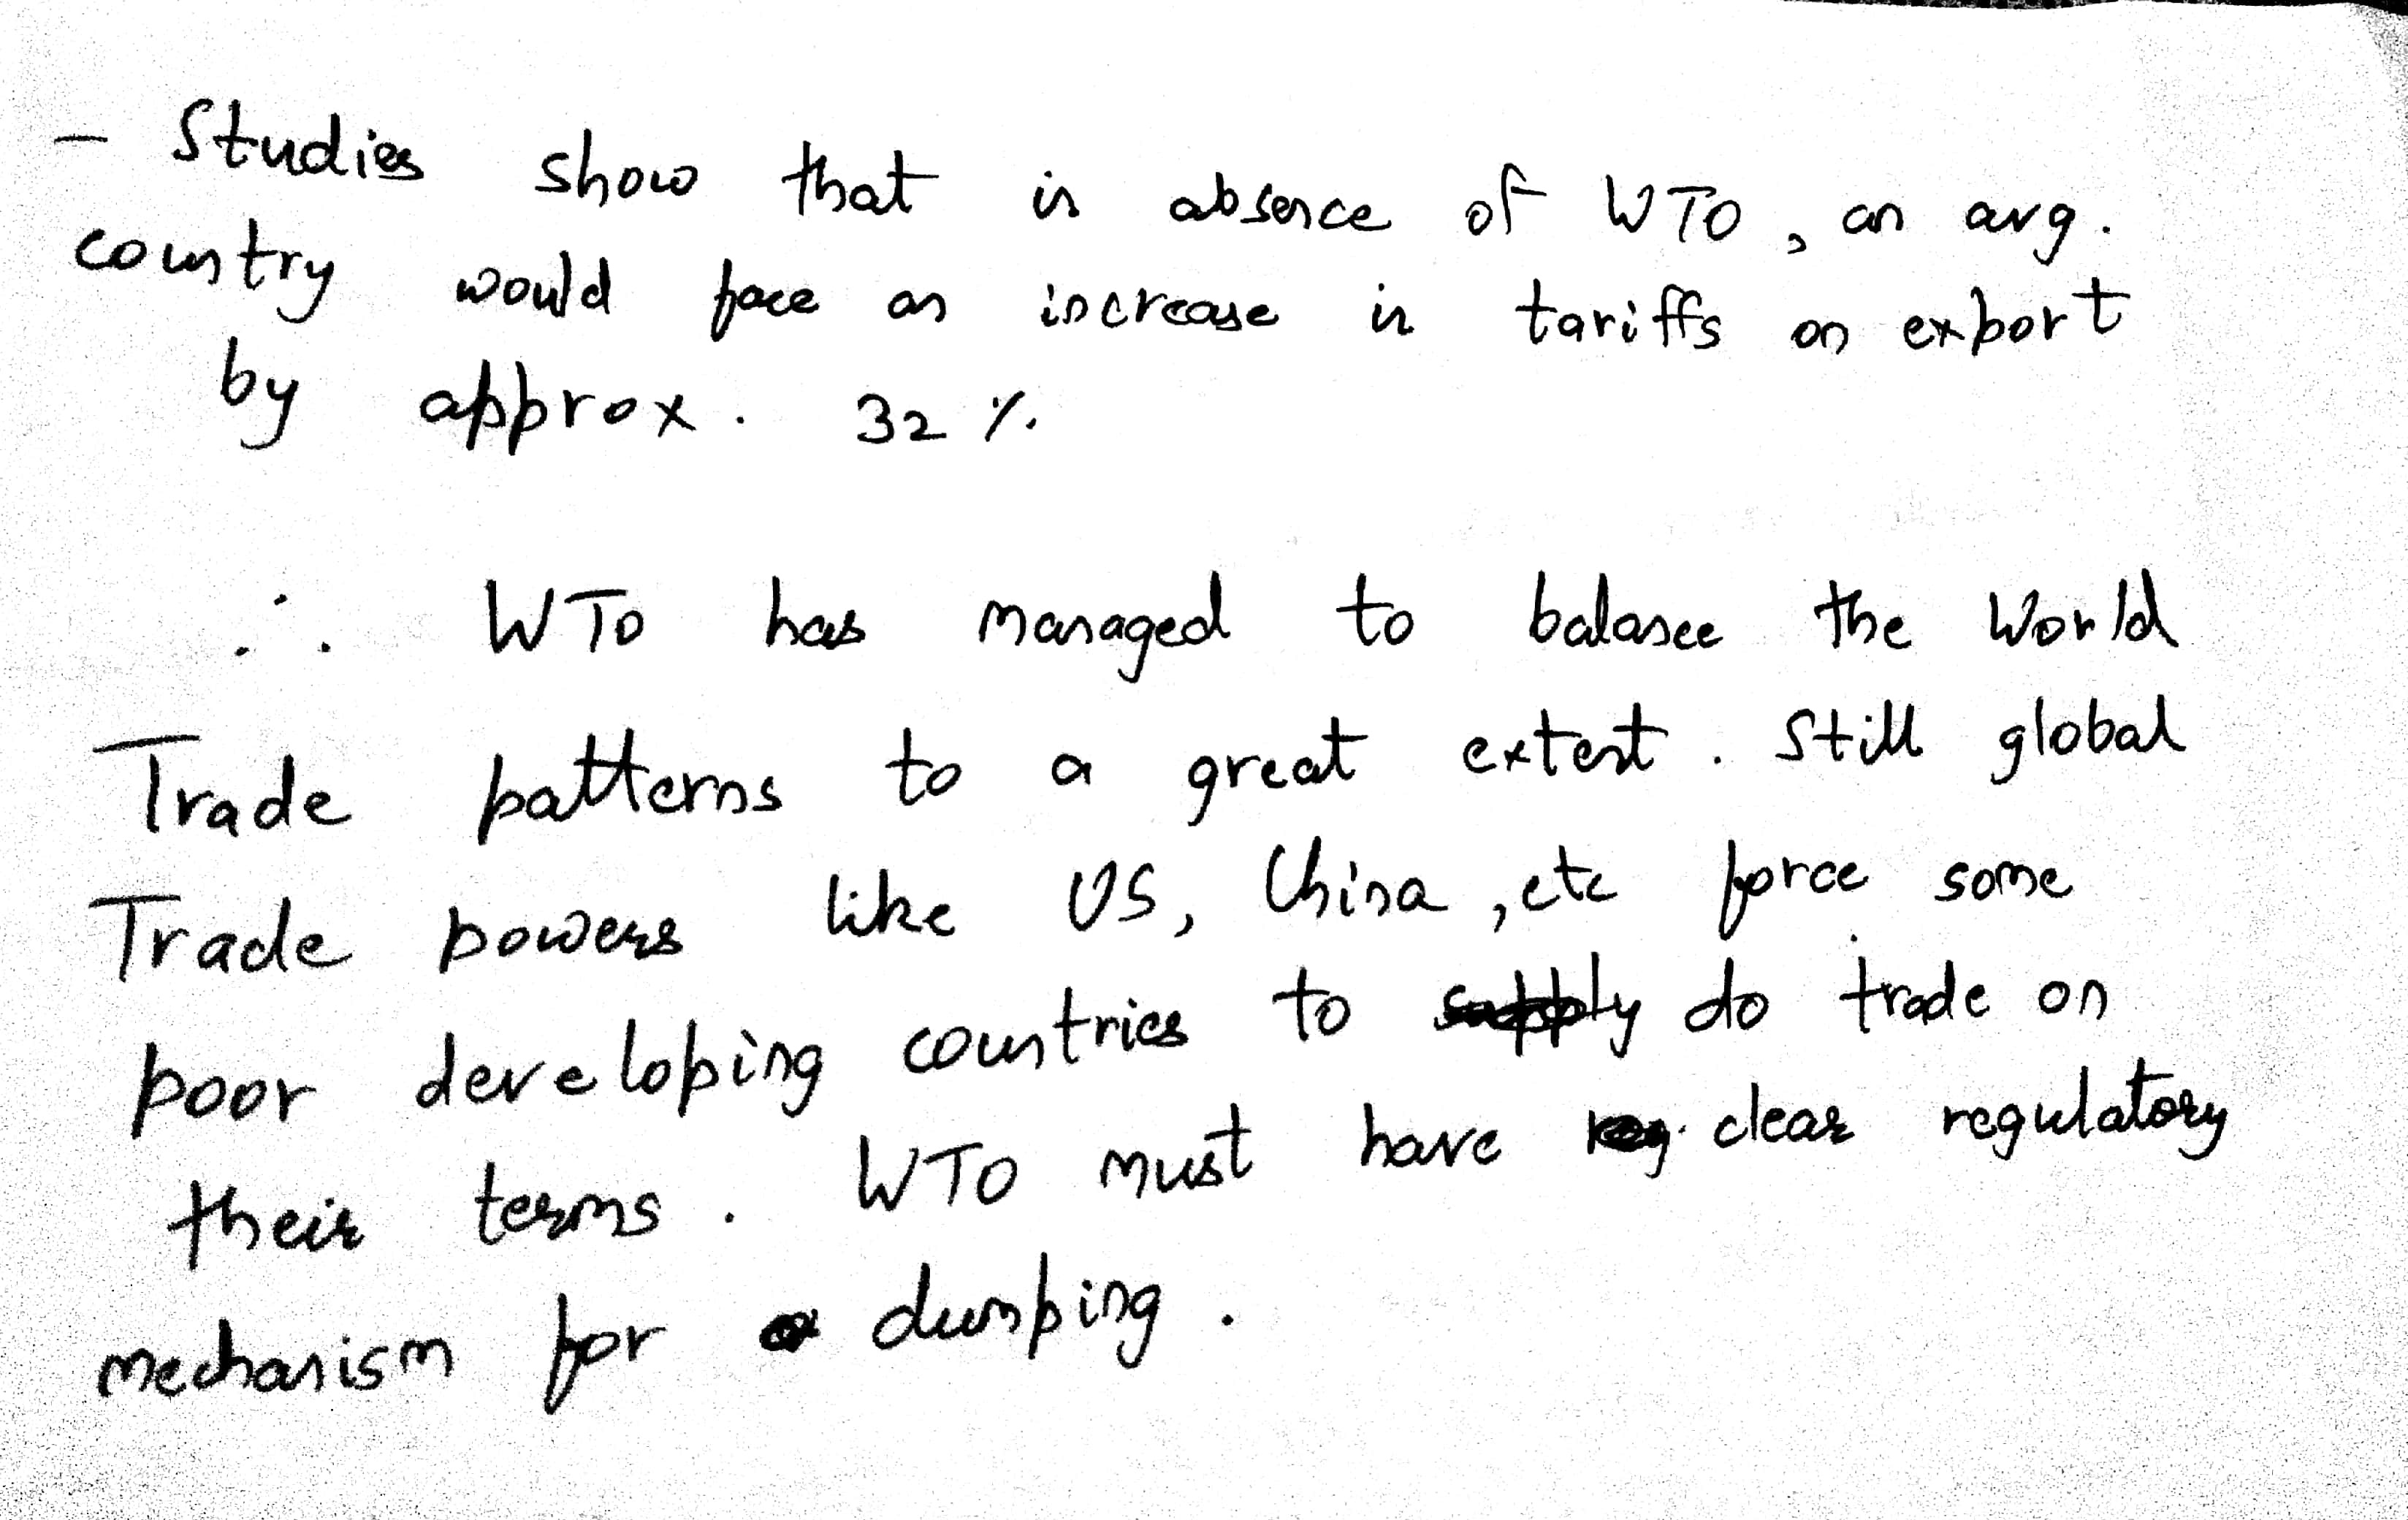 - Studies show that in absence of WTO, an avg.
country would face an increase in tariffs on export
by approx. 32 %.
∴ WTO has managed to balance the World
Trade patterns to a great extent. Still global
Trade powers like US, China, etc force some
poor developing countries to do trade on
their terms. WTO must have clear regulatory
mechanism for dumping.